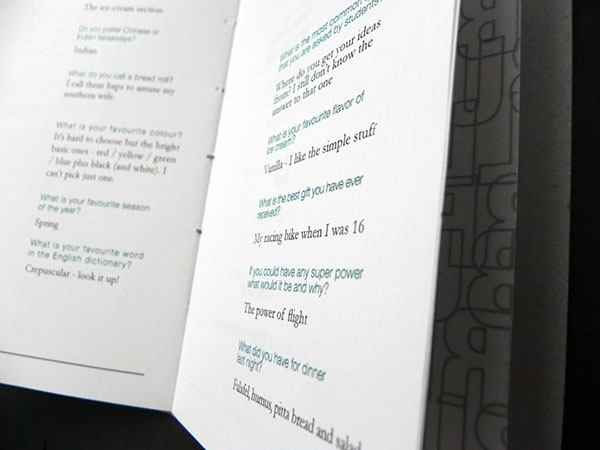 The ice-cream section.
Do you prefer Chinese or
Indian takeaways?
Indian.
What do you call a bread roll?
I call them baps to amuse my
southern wife.
What is your favourite colour?
It's hard to choose but the bright
basic ones - red / yellow / green
/ blue plus black (and white). I
can't pick just one.
What is your favourite season
of the year?
Spring
What is your favourite word
in the English dictionary?
Crepuscular - look it up!
What is the most common
that you are asked by students?
Where do you get your ideas
from? I still don't know the
answer to that one
What is your favourite flavor of
ice cream?
Vanilla - I like the simple stuff
What is the best gift you have ever
received?
My racing bike when I was 16
If you could have any super power
what would it be and why?
The power of flight
What did you have for dinner
last night?
Falafel, humus, pitta bread and salad